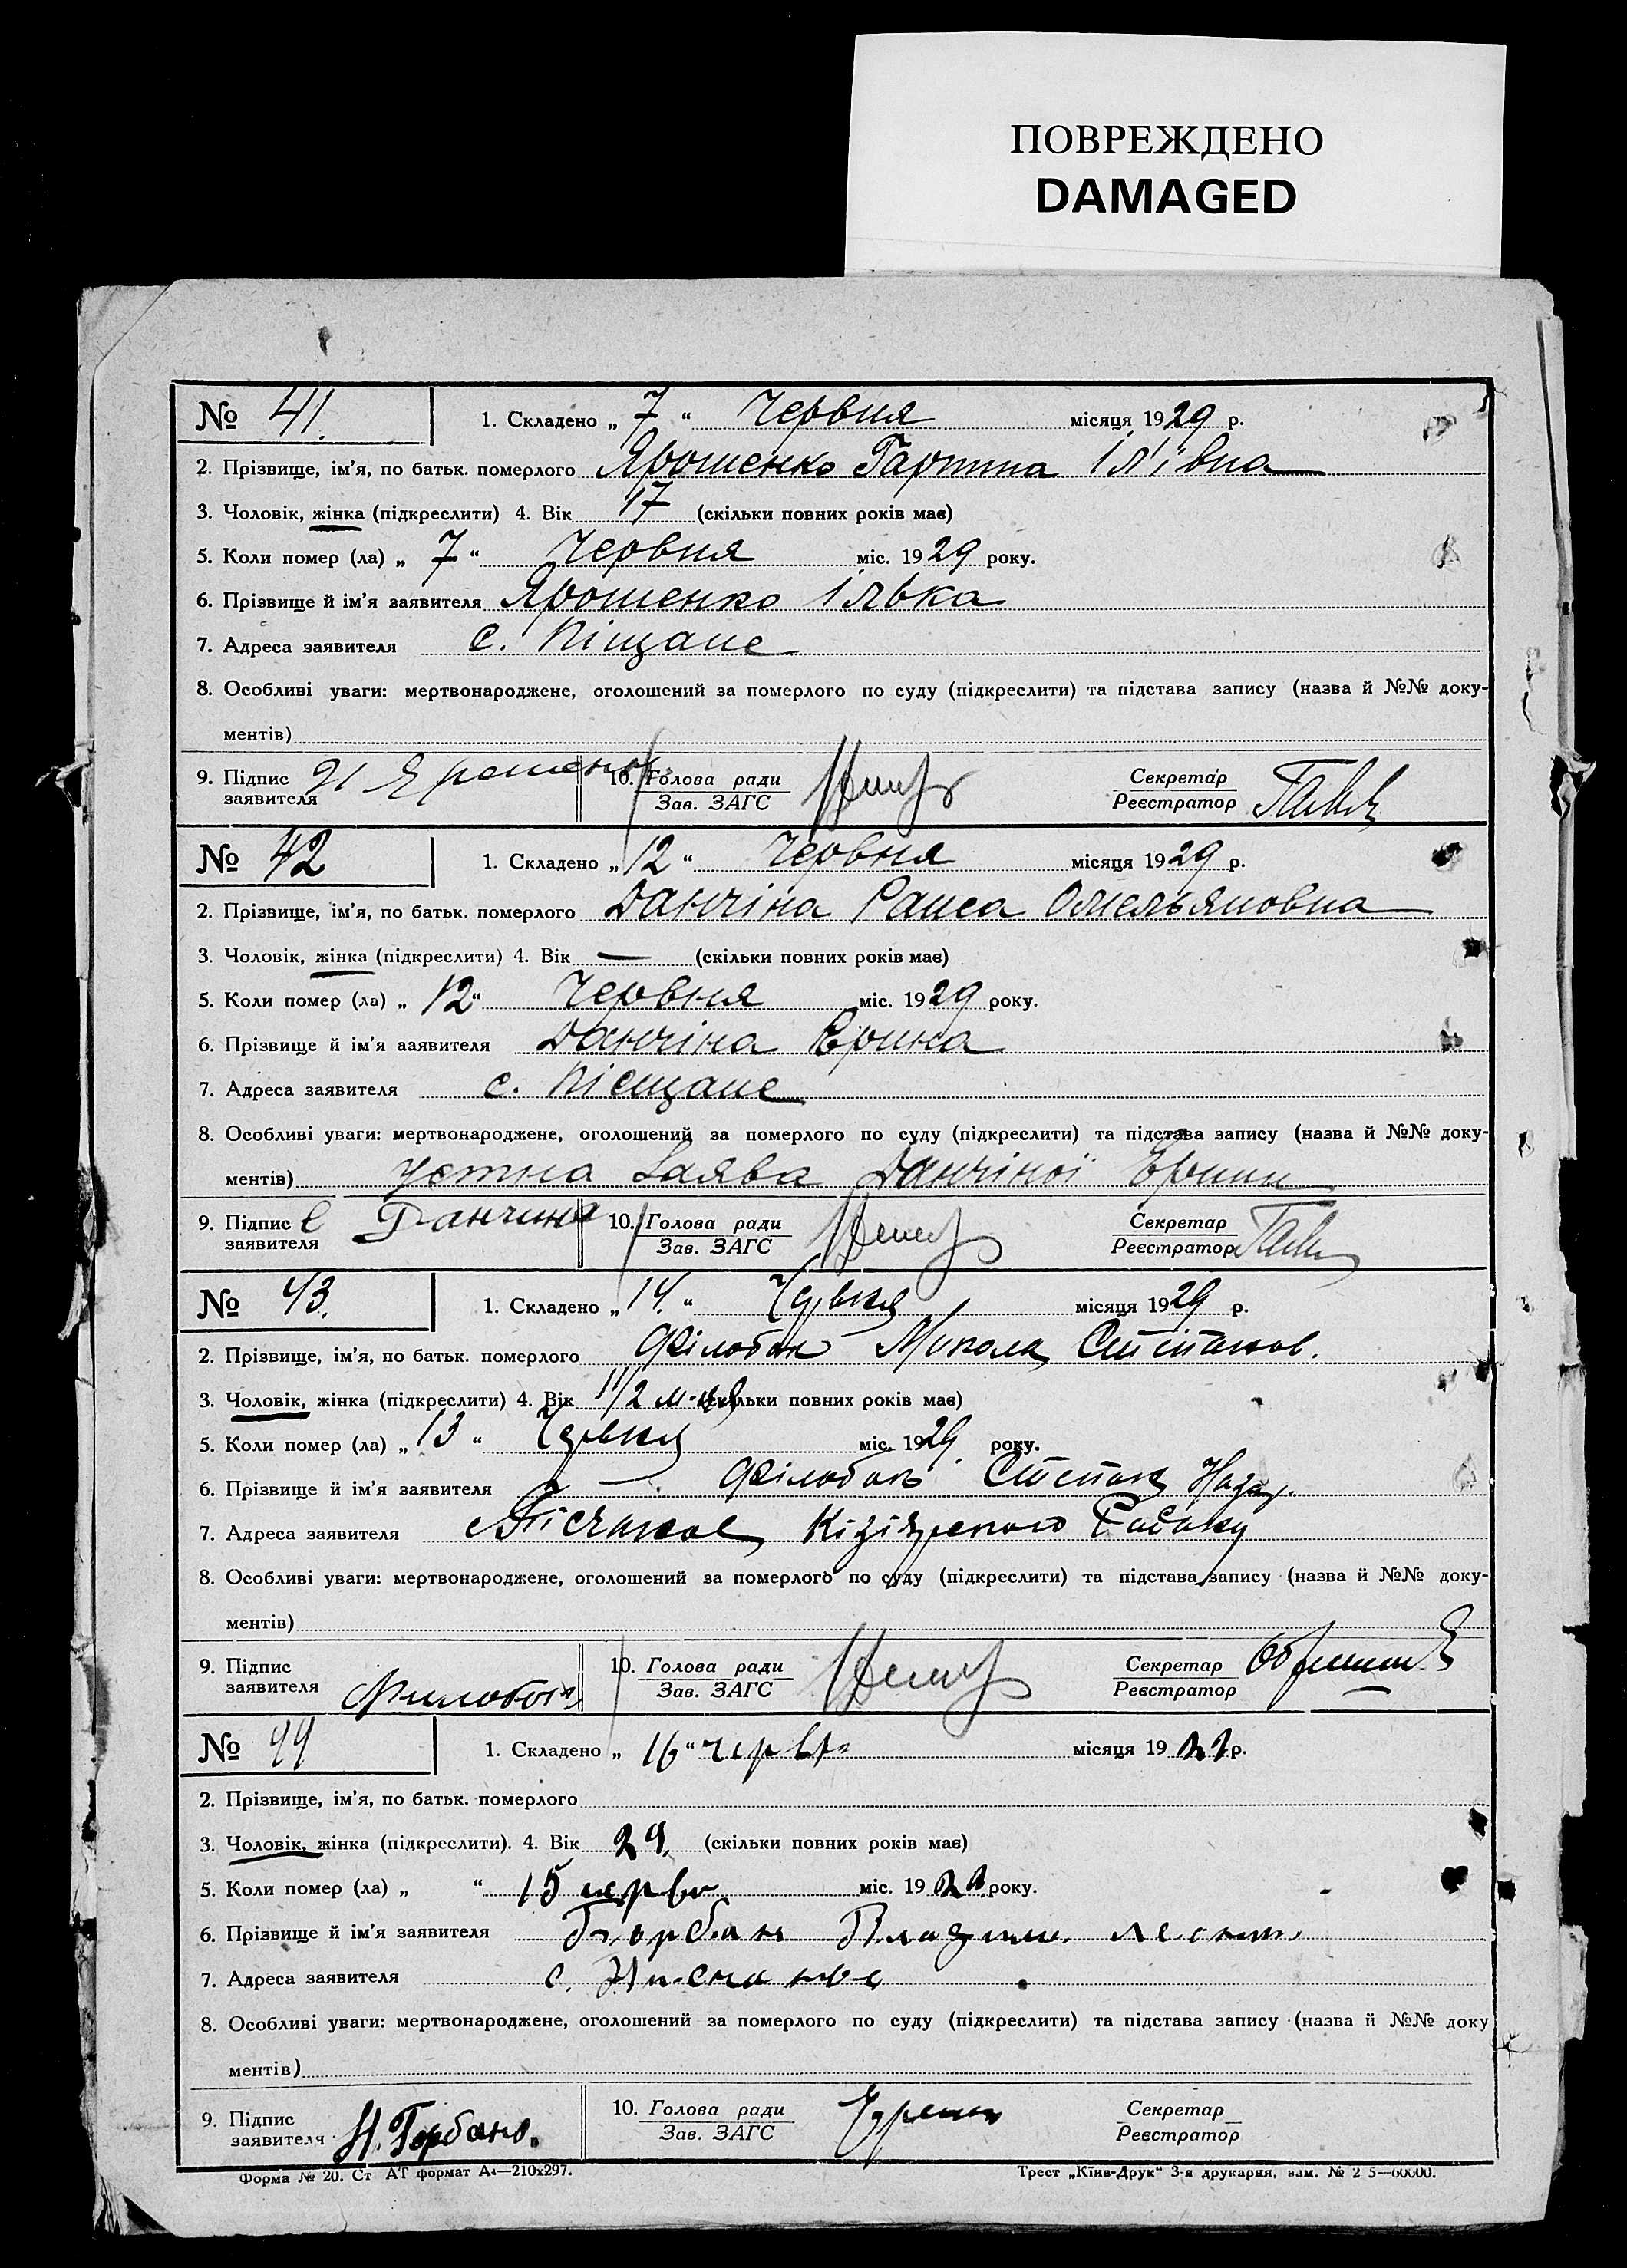 ПОВРЕЖДЕНО
DAMAGED
№ 41. 1. Складено „ 7 “ Червня місяця 1929 р.
2. Прізвище, ім'я, по батьк. померлого Ярошенко Гарпина Іл'івна
3. Чоловік, жінка (підкреслити) 4. Вік 17 (скільки повних років має)
5. Коли помер (ла) „ 7 “ Червня міс. 1929 року.
6. Прізвище й ім'я заявителя Ярошенко Ілька
7. Адреса заявителя с. Піщане
8. Особливі уваги: мертвонароджене, оголошений за померлого по суду (підкреслити) та підстава запису (назва й №№ доку-
ментів)
9. Підпис заявителя 10. Голова ради Зав. ЗАГС Секретар Реєстратор
№ 42 1. Складено „ 12 “ Червня місяця 1929 р.
2. Прізвище, ім'я, по батьк. померлого Данчіна Раиса Омельяновна
3. Чоловік, жінка (підкреслити) 4. Вік — (скільки повних років має)
5. Коли помер (ла) „ 12 “ Червня міс. 1929 року.
6. Прізвище й ім'я ааявителя Данчіна Єрина
7. Адреса заявителя с. Піещане
8. Особливі уваги: мертвонароджене, оголошений за померлого по суду (підкреслити) та підстава запису (назва й №№ доку-
ментів) Устна Заява Данчіної Єрини
9. Підпис заявителя Е Данчина 10. Голова ради Зав. ЗАГС Секретар Реєстратор
№ 43. 1. Складено „ 14. “ Червня місяця 1929 р.
2. Прізвище, ім'я, по батьк. померлого Микола Степанов.
3. Чоловік, жінка (підкреслити) 4. Вік 1 1/2 (скільки повних років має)
5. Коли помер (ла) „ 13 “ Червня міс. 1929 року.
6. Прізвище й ім'я заявителя Степан Назар.
7. Адреса заявителя
8. Особливі уваги: мертвонароджене, оголошений за померлого по суду (підкреслити) та підстава запису (назва й №№ доку-
ментів)
9. Підпис заявителя 10. Голова ради Зав. ЗАГС Секретар Реєстратор
№ 44 1. Складено „ 16 “ місяця 19 р.
2. Прізвище, ім'я, по батьк. померлого
3. Чоловік, жінка (підкреслити). 4. Вік (скільки повних років має)
5. Коли помер (ла) „ “ 15 міс. 19 року.
6. Прізвище й ім'я заявителя
7. Адреса заявителя с.
8. Особливі уваги: мертвонароджене, оголошений за померлого по суду (підкреслити) та підстава запису (назва й №№ доку
ментів)
9. Підпис заявителя Н. Горбань. 10. Голова ради Зав. ЗАГС Секретар Реєстратор
Форма № 20. Ст АТ формат А4—210х297. Трест „Київ-Друк“ 3-я друкарня, зам. № 2 5—60000.